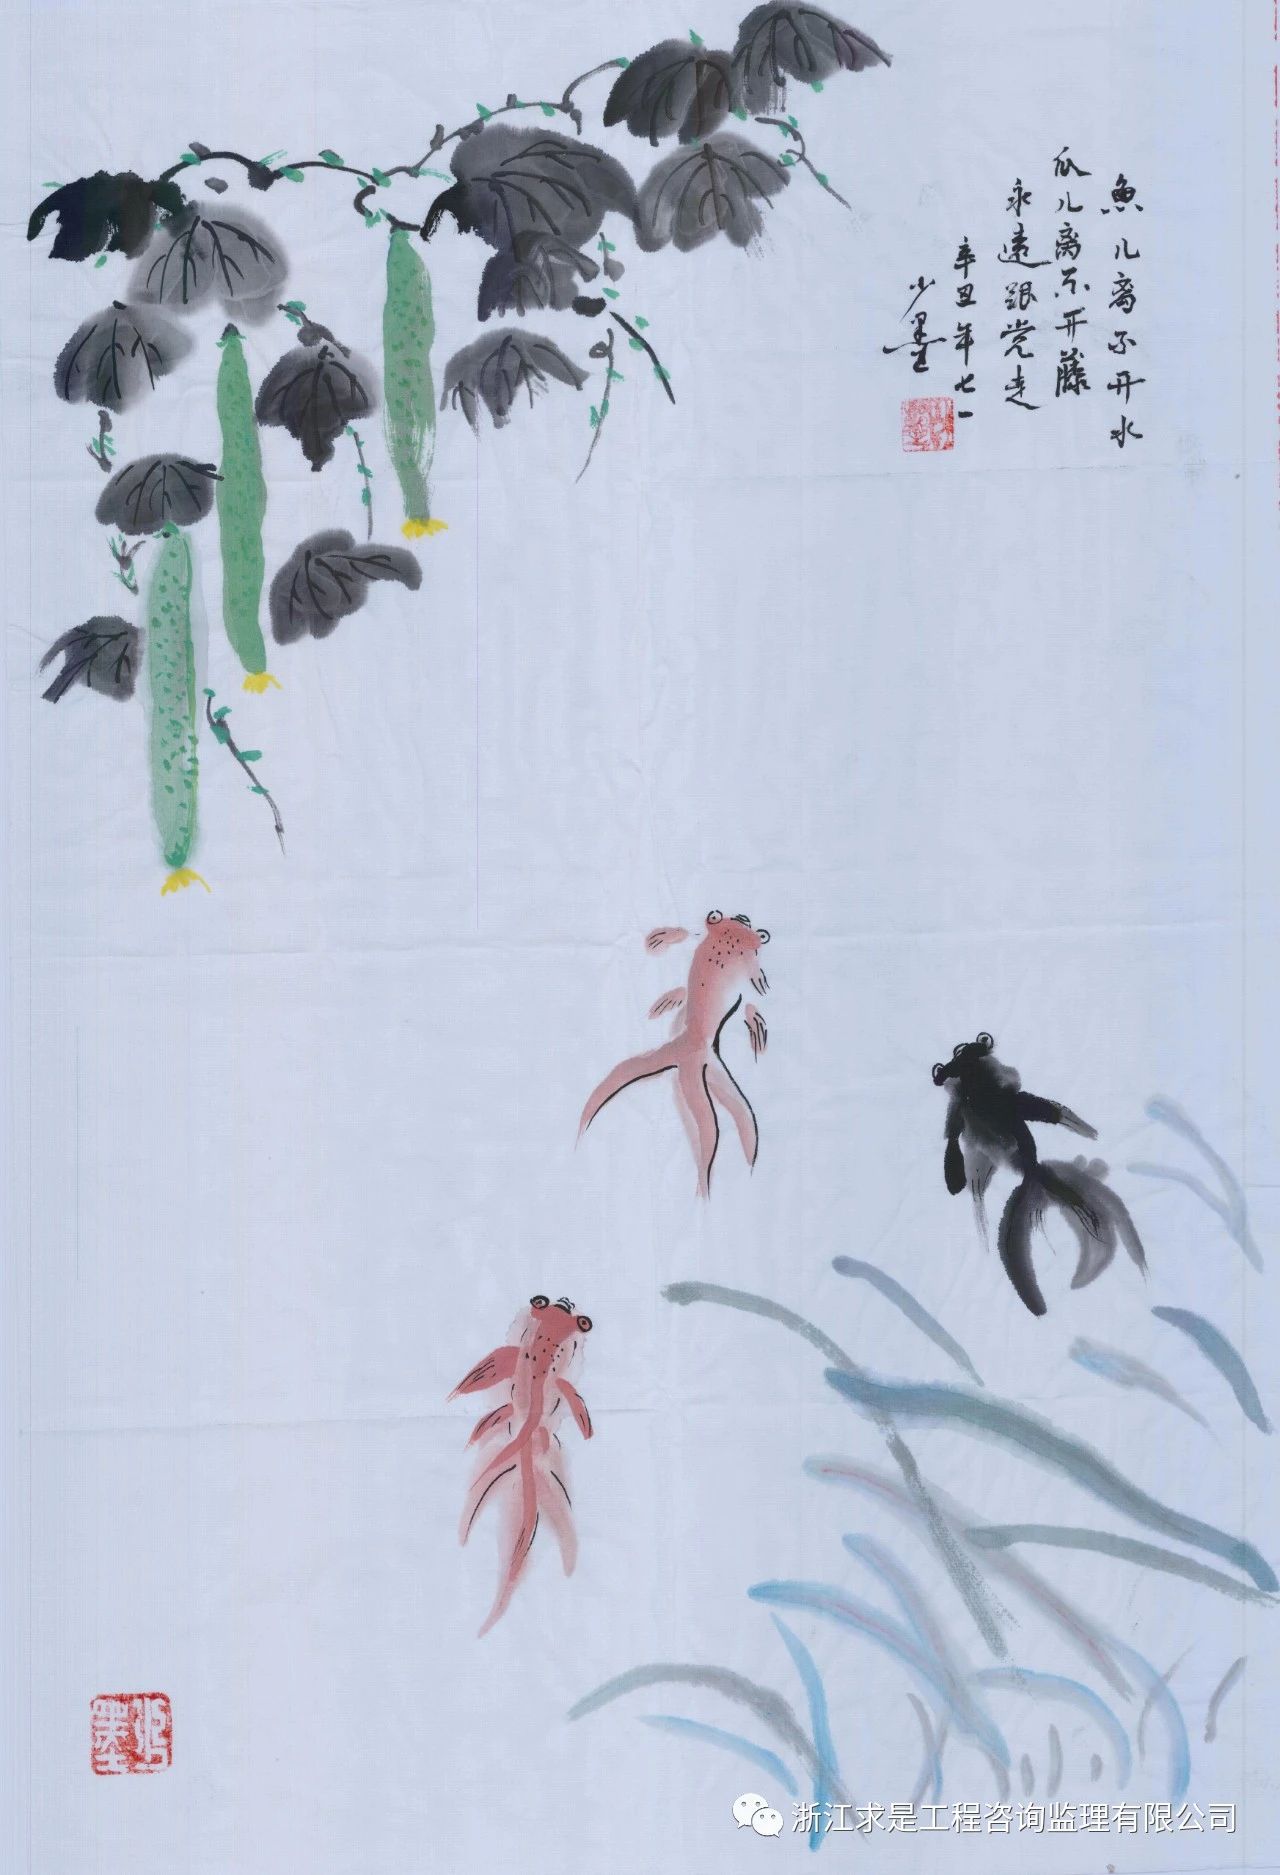 魚儿离不开水
瓜儿离不开藤
永遠跟党走
辛丑年七一
少墨
浙江求是工程咨询监理有限公司